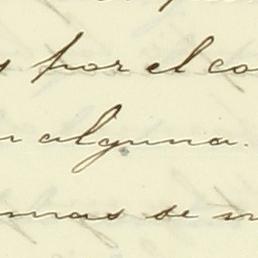 por el co
alguna.
mas se